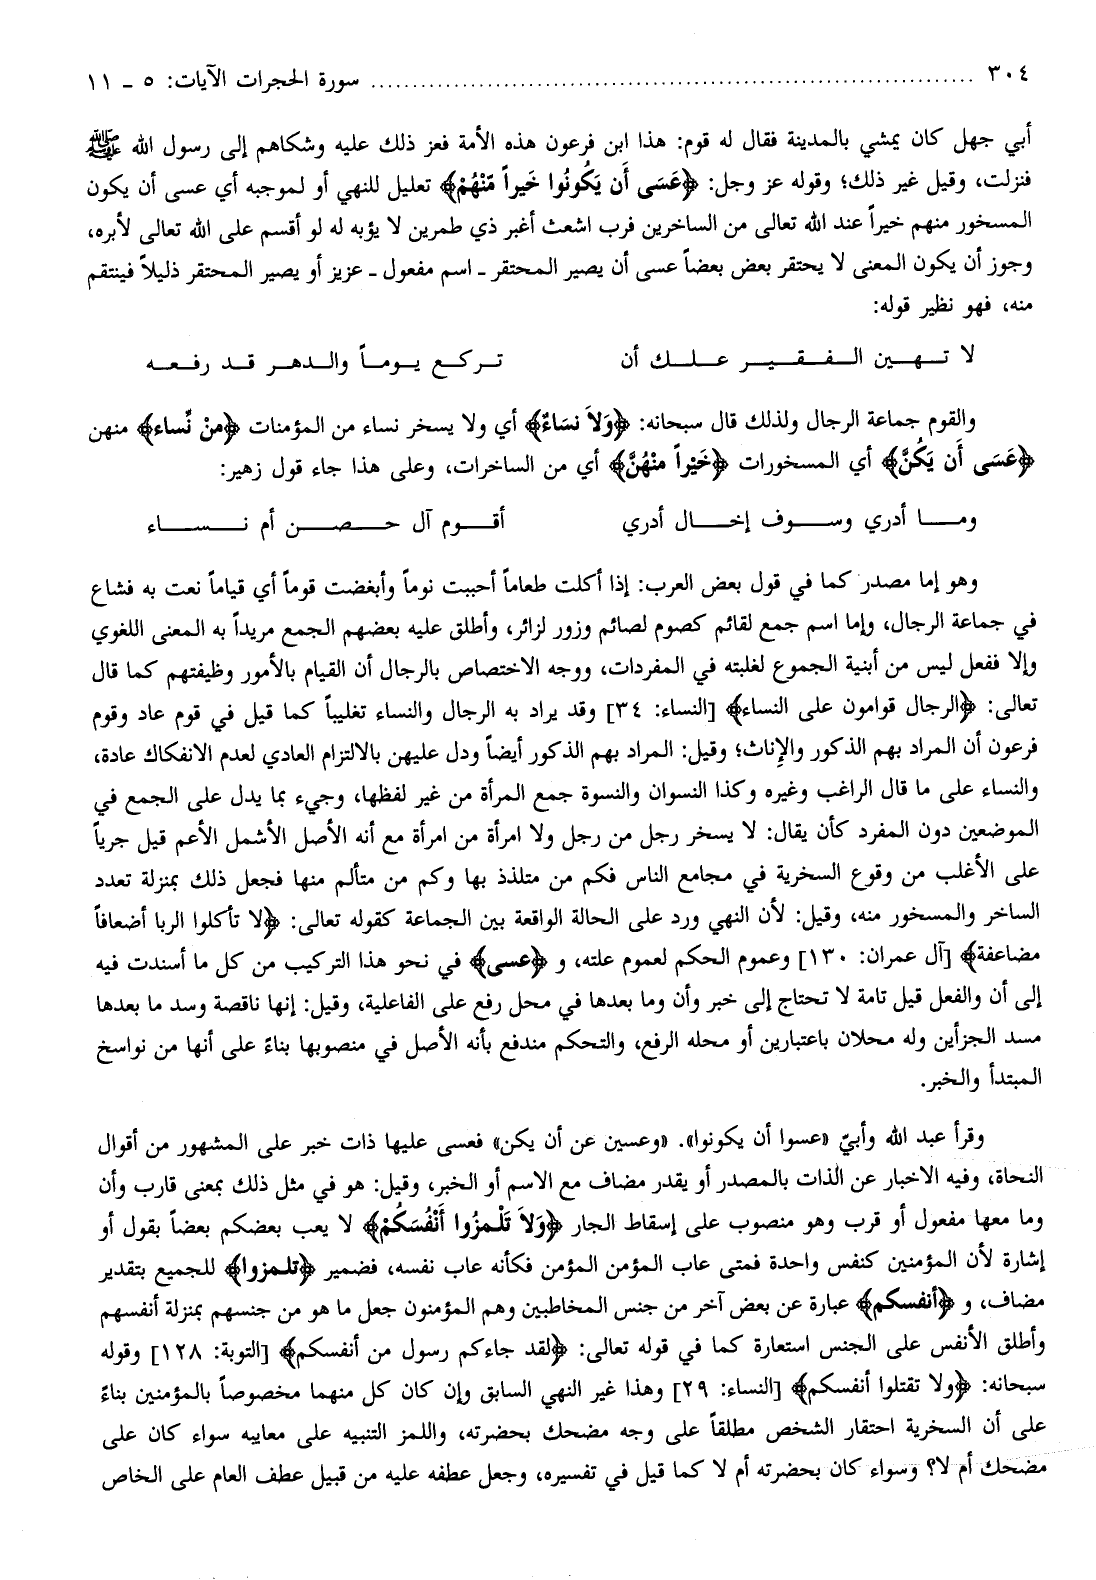 ٣٠٤ .......... سورة الحجرات الآيات: ٥ ـ ١١
أبي جهل كان يمشي بالمدينة فقال له قوم: هذا ابن فرعون هذه الأمة فعز ذلك عليه وشكاهم إلى رسول الله ﷺ
فنزلت، وقيل غير ذلك؛ وقوله عز وجل: ﴿عَسَى أَن يَكُونُوا خَيراً مّنْهُمْ﴾ تعليل للنهي أو لموجبه أي عسى أن يكون
المسخور منهم خيراً عند الله تعالى من الساخرين فرب اشعث أغبر ذي طمرين لا يؤبه له لو أقسم على الله تعالى لأبره،
وجوز أن يكون المعنى لا يحتقر بعض بعضاً عسى أن يصير المحتقر ـ اسم مفعول ـ عزيز أو يصير المحتقر ذليلاً فينتقم
منه، فهو نظير قوله:
لا تهين الفقير علك أن تركع يوماً والدهر قد رفعه
والقوم جماعة الرجال ولذلك قال سبحانه: ﴿وَلاَ نسَاءٌ﴾ أي ولا يسخر نساء من المؤمنات ﴿منْ نِّساء﴾ منهن
﴿عَسَى أَن يَكُنَّ﴾ أي المسخورات ﴿خَيْراً منْهُنَّ﴾ أي من الساخرات، وعلى هذا جاء قول زهير:
وما أدري وسوف إخال أدري أقوم آل حصن أم نساء
وهو إما مصدر كما في قول بعض العرب: إذا أكلت طعاماً أحببت نوماً وأبغضت قوماً أي قياماً نعت به فشاع
في جماعة الرجال، وإما اسم جمع لقائم كصوم لصائم وزور لزائر، وأطلق عليه بعضهم الجمع مريداً به المعنى اللغوي
وإلا ففعل ليس من أبنية الجموع لغلبته في المفردات، ووجه الاختصاص بالرجال أن القيام بالأمور وظيفتهم كما قال
تعالى: ﴿الرجال قوامون على النساء﴾ [النساء: ٣٤] وقد يراد به الرجال والنساء تغليباً كما قيل في قوم عاد وقوم
فرعون أن المراد بهم الذكور والإناث؛ وقيل: المراد بهم الذكور أيضاً ودل عليهن بالالتزام العادي لعدم الانفكاك عادة،
والنساء على ما قال الراغب وغيره وكذا النسوان والنسوة جمع المرأة من غير لفظها، وجيء بما يدل على الجمع في
الموضعين دون المفرد كأن يقال: لا يسخر رجل من رجل ولا امرأة من امرأة مع أنه الأصل الأشمل الأعم قيل جرياً
على الأغلب من وقوع السخرية في مجامع الناس فكم من متلذذ بها وكم من متألم منها فجعل ذلك بمنزلة تعدد
الساخر والمسخور منه، وقيل: لأن النهي ورد على الحالة الواقعة بين الجماعة كقوله تعالى: ﴿لا تأكلوا الربا أضعافاً
مضاعفة﴾ [آل عمران: ١٣٠] وعموم الحكم لعموم علته، و ﴿عسى﴾ في نحو هذا التركيب من كل ما أسندت فيه
إلى أن والفعل قيل تامة لا تحتاج إلى خبر وأن وما بعدها في محل رفع على الفاعلية، وقيل: إنها ناقصة وسد ما بعدها
مسد الجزأين وله محلان باعتبارين أو محله الرفع، والتحكم مندفع بأنه الأصل في منصوبها بناءً على أنها من نواسخ
المبتدأ والخبر.
وقرأ عبد الله وأبيّ «عسوا أن يكونوا». «وعسين عن أن يكن» فعسى عليها ذات خبر على المشهور من أقوال
النحاة، وفيه الاخبار عن الذات بالمصدر أو يقدر مضاف مع الاسم أو الخبر، وقيل: هو في مثل ذلك بمعنى قارب وأن
وما معها مفعول أو قرب وهو منصوب على إسقاط الجار ﴿وَلاَ تَلْمزُوا أَنْفُسَكُمْ﴾ لا يعب بعضكم بعضاً بقول أو
إشارة لأن المؤمنين كنفس واحدة فمتى عاب المؤمن المؤمن فكأنه عاب نفسه، فضمير ﴿تلمزوا﴾ للجميع بتقدير
مضاف، و ﴿أنفسكم﴾ عبارة عن بعض آخر من جنس المخاطبين وهم المؤمنون جعل ما هو من جنسهم بمنزلة أنفسهم
وأطلق الأنفس على الجنس استعارة كما في قوله تعالى: ﴿لقد جاءكم رسول من أنفسكم﴾ [التوبة: ١٢٨] وقوله
سبحانه: ﴿ولا تقتلوا أنفسكم﴾ [النساء: ٢٩] وهذا غير النهي السابق وإن كان كل منهما مخصوصاً بالمؤمنين بناءً
على أن السخرية احتقار الشخص مطلقاً على وجه مضحك بحضرته، واللمز التنبيه على معايبه سواء كان على
مضحك أم لا؟ وسواء كان بحضرته أم لا كما قيل في تفسيره، وجعل عطفه عليه من قبيل عطف العام على الخاص